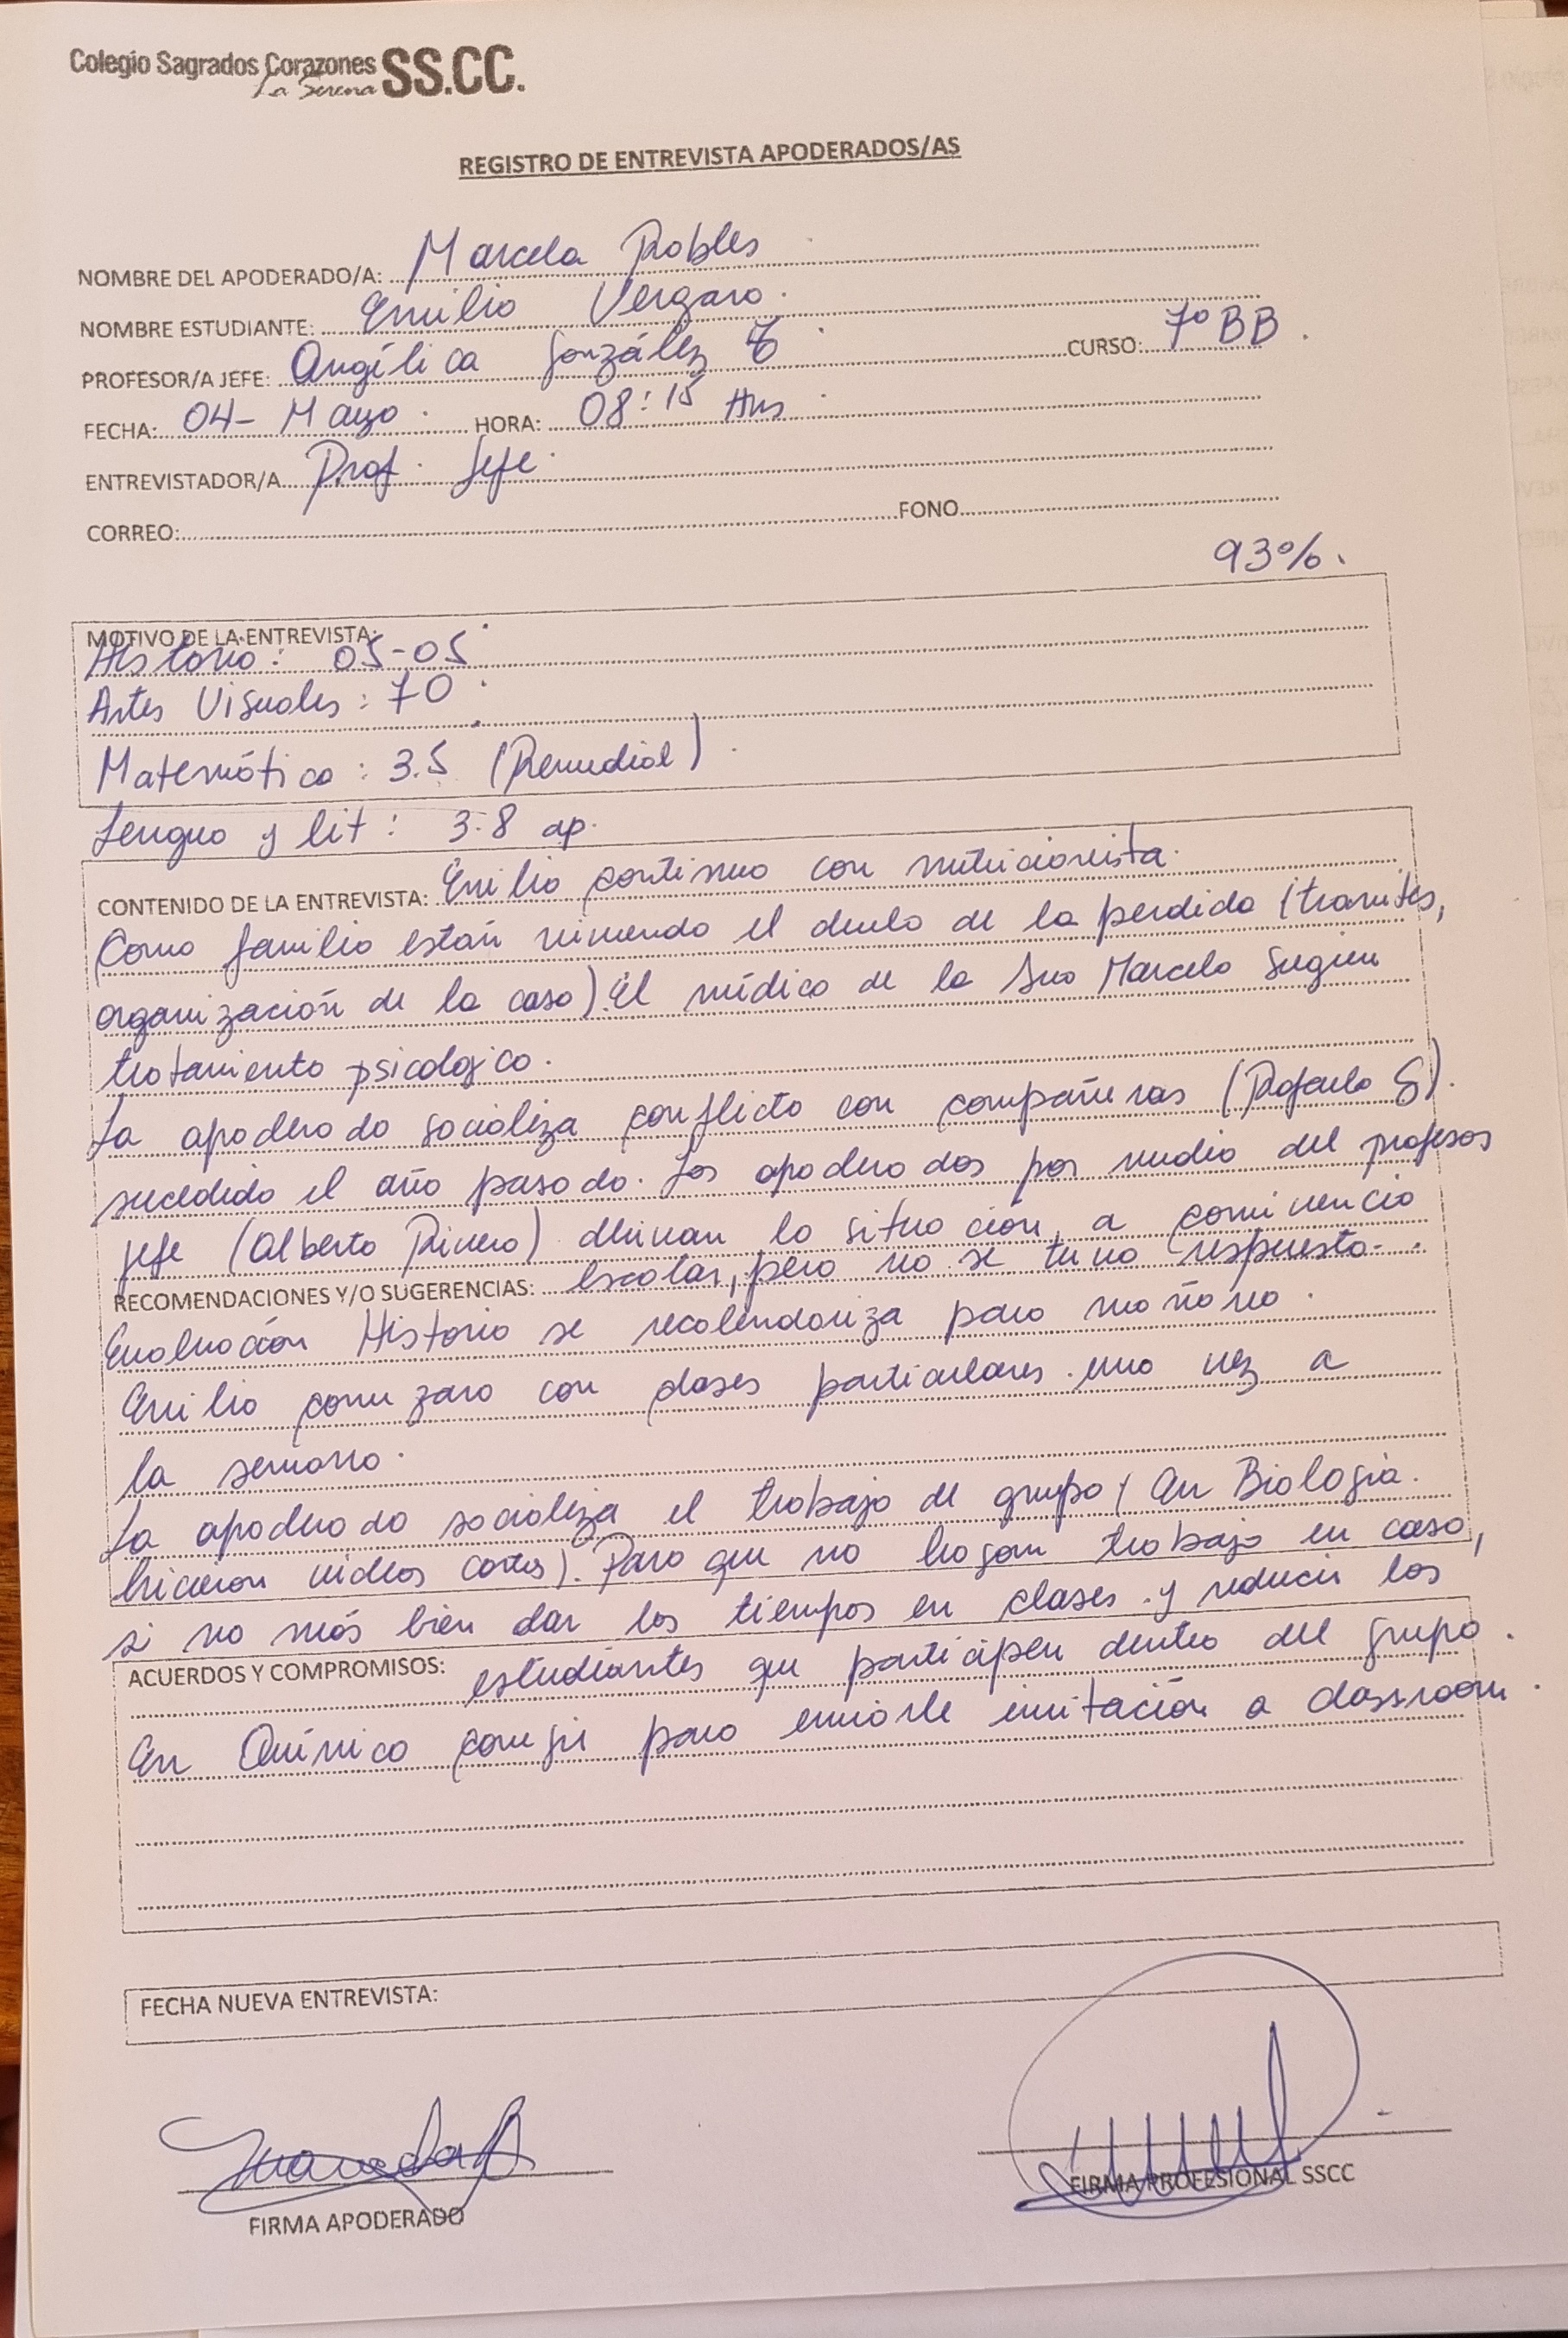 Colegio Sagrados Corazones SS.CC.
La Serena
REGISTRO DE ENTREVISTA APODERADOS/AS
NOMBRE DEL APODERADO/A: Marcela Robles
NOMBRE ESTUDIANTE: Emilio Vergara.
PROFESOR/A JEFE: Angélica González CURSO: 7º BB.
FECHA: 04- Mayo. HORA: 08:15 Hrs
ENTREVISTADOR/A Prof. Jefe.
CORREO: FONO
93%.
MOTIVO DE LA ENTREVISTA:
Historia: 05-05
Artes Visuales: 70
Matemática: 3.5 (Remedial).
Lengua y lit: 3.8 ap.
CONTENIDO DE LA ENTREVISTA: Emilio continua con nutricionista.
(Como familia están viviendo el duelo de la perdida (tramites,
organización de la casa). El médico de la Sra Marcela sugiere
tratamiento psicologico.
La apoderada socializa conflicto con compañeras (Rafaela S).
sucedido el año pasado. Los apoderados por medio del profesor
jefe (Alberto Rivera) derivan la situación, a convivencia
RECOMENDACIONES Y/O SUGERENCIAS: escolar, pero no se tuvo respuesta.
Evaluación Historia se recalendariza para mañana.
Emilio comenzara con clases particulares. una vez a
la semana.
La apoderada socializa el trabajo de grupo (En Biología.
hicieron videos cortos). Para que no hagan trabajo en casa,
si no más bien dar los tiempos en clases. y reducir los
ACUERDOS Y COMPROMISOS: estudiantes que participen dentro del grupo.
En Química corregir para enviarle invitación a classroom.
FECHA NUEVA ENTREVISTA:
FIRMA APODERADO
FIRMA PROFESIONAL SSCC